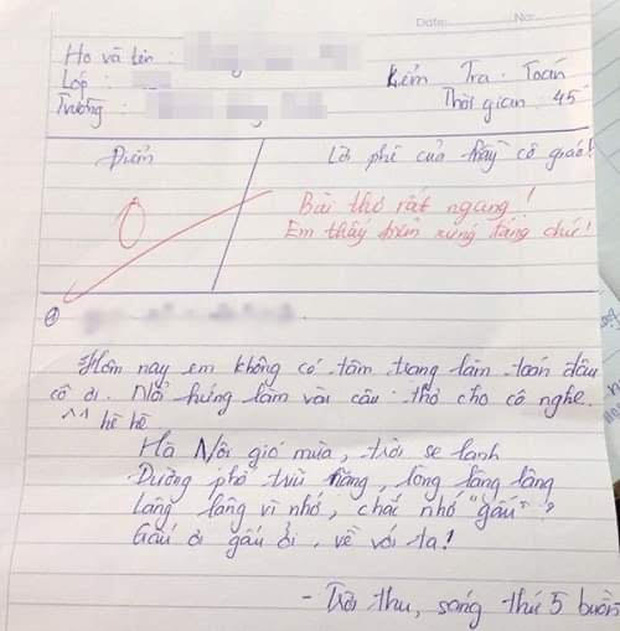 Date: No:
Họ và tên :
Lớp :
Trường :
Kiểm Tra Toán
Thời gian 45'
Điểm
Lời phê của thầy cô giáo!
0
Bài thơ rất ngang!
Em thấy điểm xứng đáng chứ!
①
Hôm nay em không có tâm trạng làm toán đâu
cô ơi. Nổi hứng làm vài câu thơ cho cô nghe.
^^ hề hề
Hà Nội gió mùa, trời se lạnh
Đường phố trĩu nặng, lòng lâng lâng
Lâng lâng vì nhớ, chắc nhớ "gấu"?
Gấu ơi gấu ởi, về với ta!
- Trời thu, sáng thứ 5 buồn